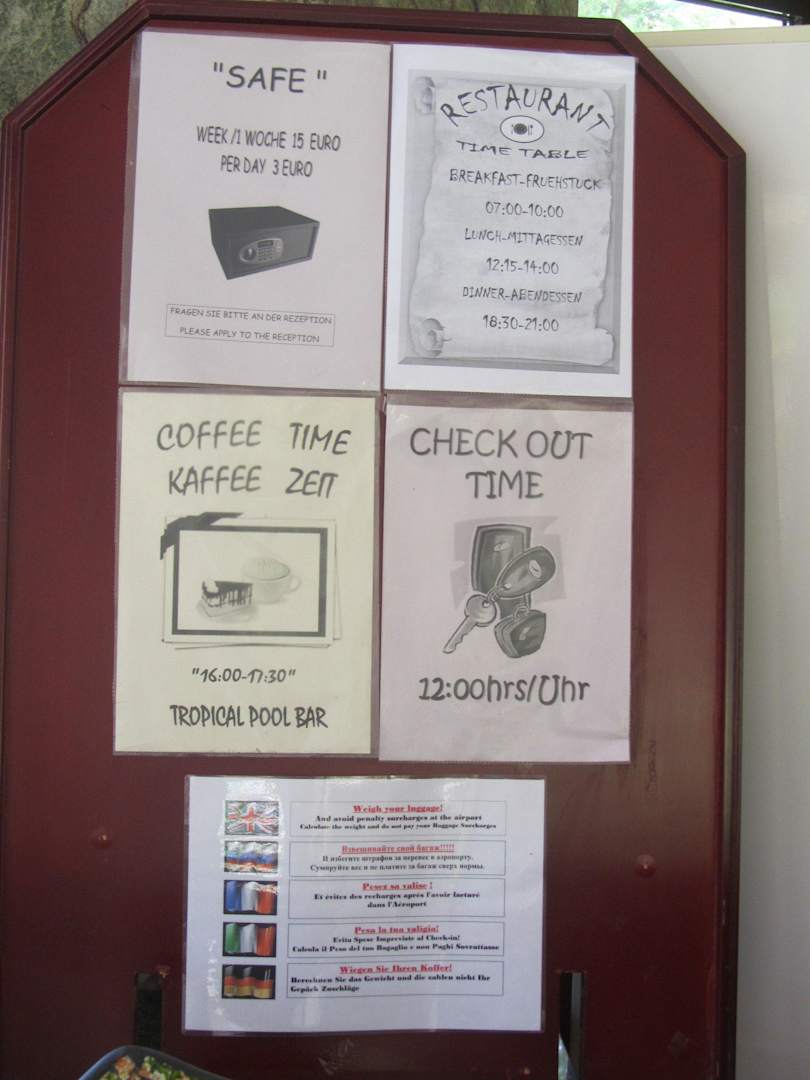 "SAFE "
WEEK /1 WOCHE 15 EURO
PER DAY 3 EURO
FRAGEN SIE BITTE AN DER REZEPTION
PLEASE APPLY TO THE RECEPTION
RESTAURANT
TIME TABLE
BREAKFAST-FRUEHSTUCK
07:00-10:00
LUNCH-MITTAGESSEN
12:15-14:00
DINNER-ABENDESSEN
18:30-21:00
COFFEE TIME
KAFFEE ZEIT
"16:00-17:30"
TROPICAL POOL BAR
CHECK OUT
TIME
12:00hrs/Uhr
Weigh your luggage!
And avoid penalty surcharges at the airport
Calculate the weight and do not pay your Baggage Surcharges
Взвешивайте свой багаж!!!!!
И избегите штрафов за перевес в аэропорту.
Суммруйте вес и не платите за багаж сверх нормы.
Pesez sa valise !
Et évitez des recharges après l'avoir facturé
dans l'Aéroport
Pesa la tua valigia!
Evita Spese Impreviste al Check-in!
Calcola il Peso del tuo Bagaglio e non Paghi Sovrattasse
Wiegen Sie Ihren Koffer!
Berechnen Sie das Gewicht und die zahlen nicht Ihr
Gepäck Zuschläge